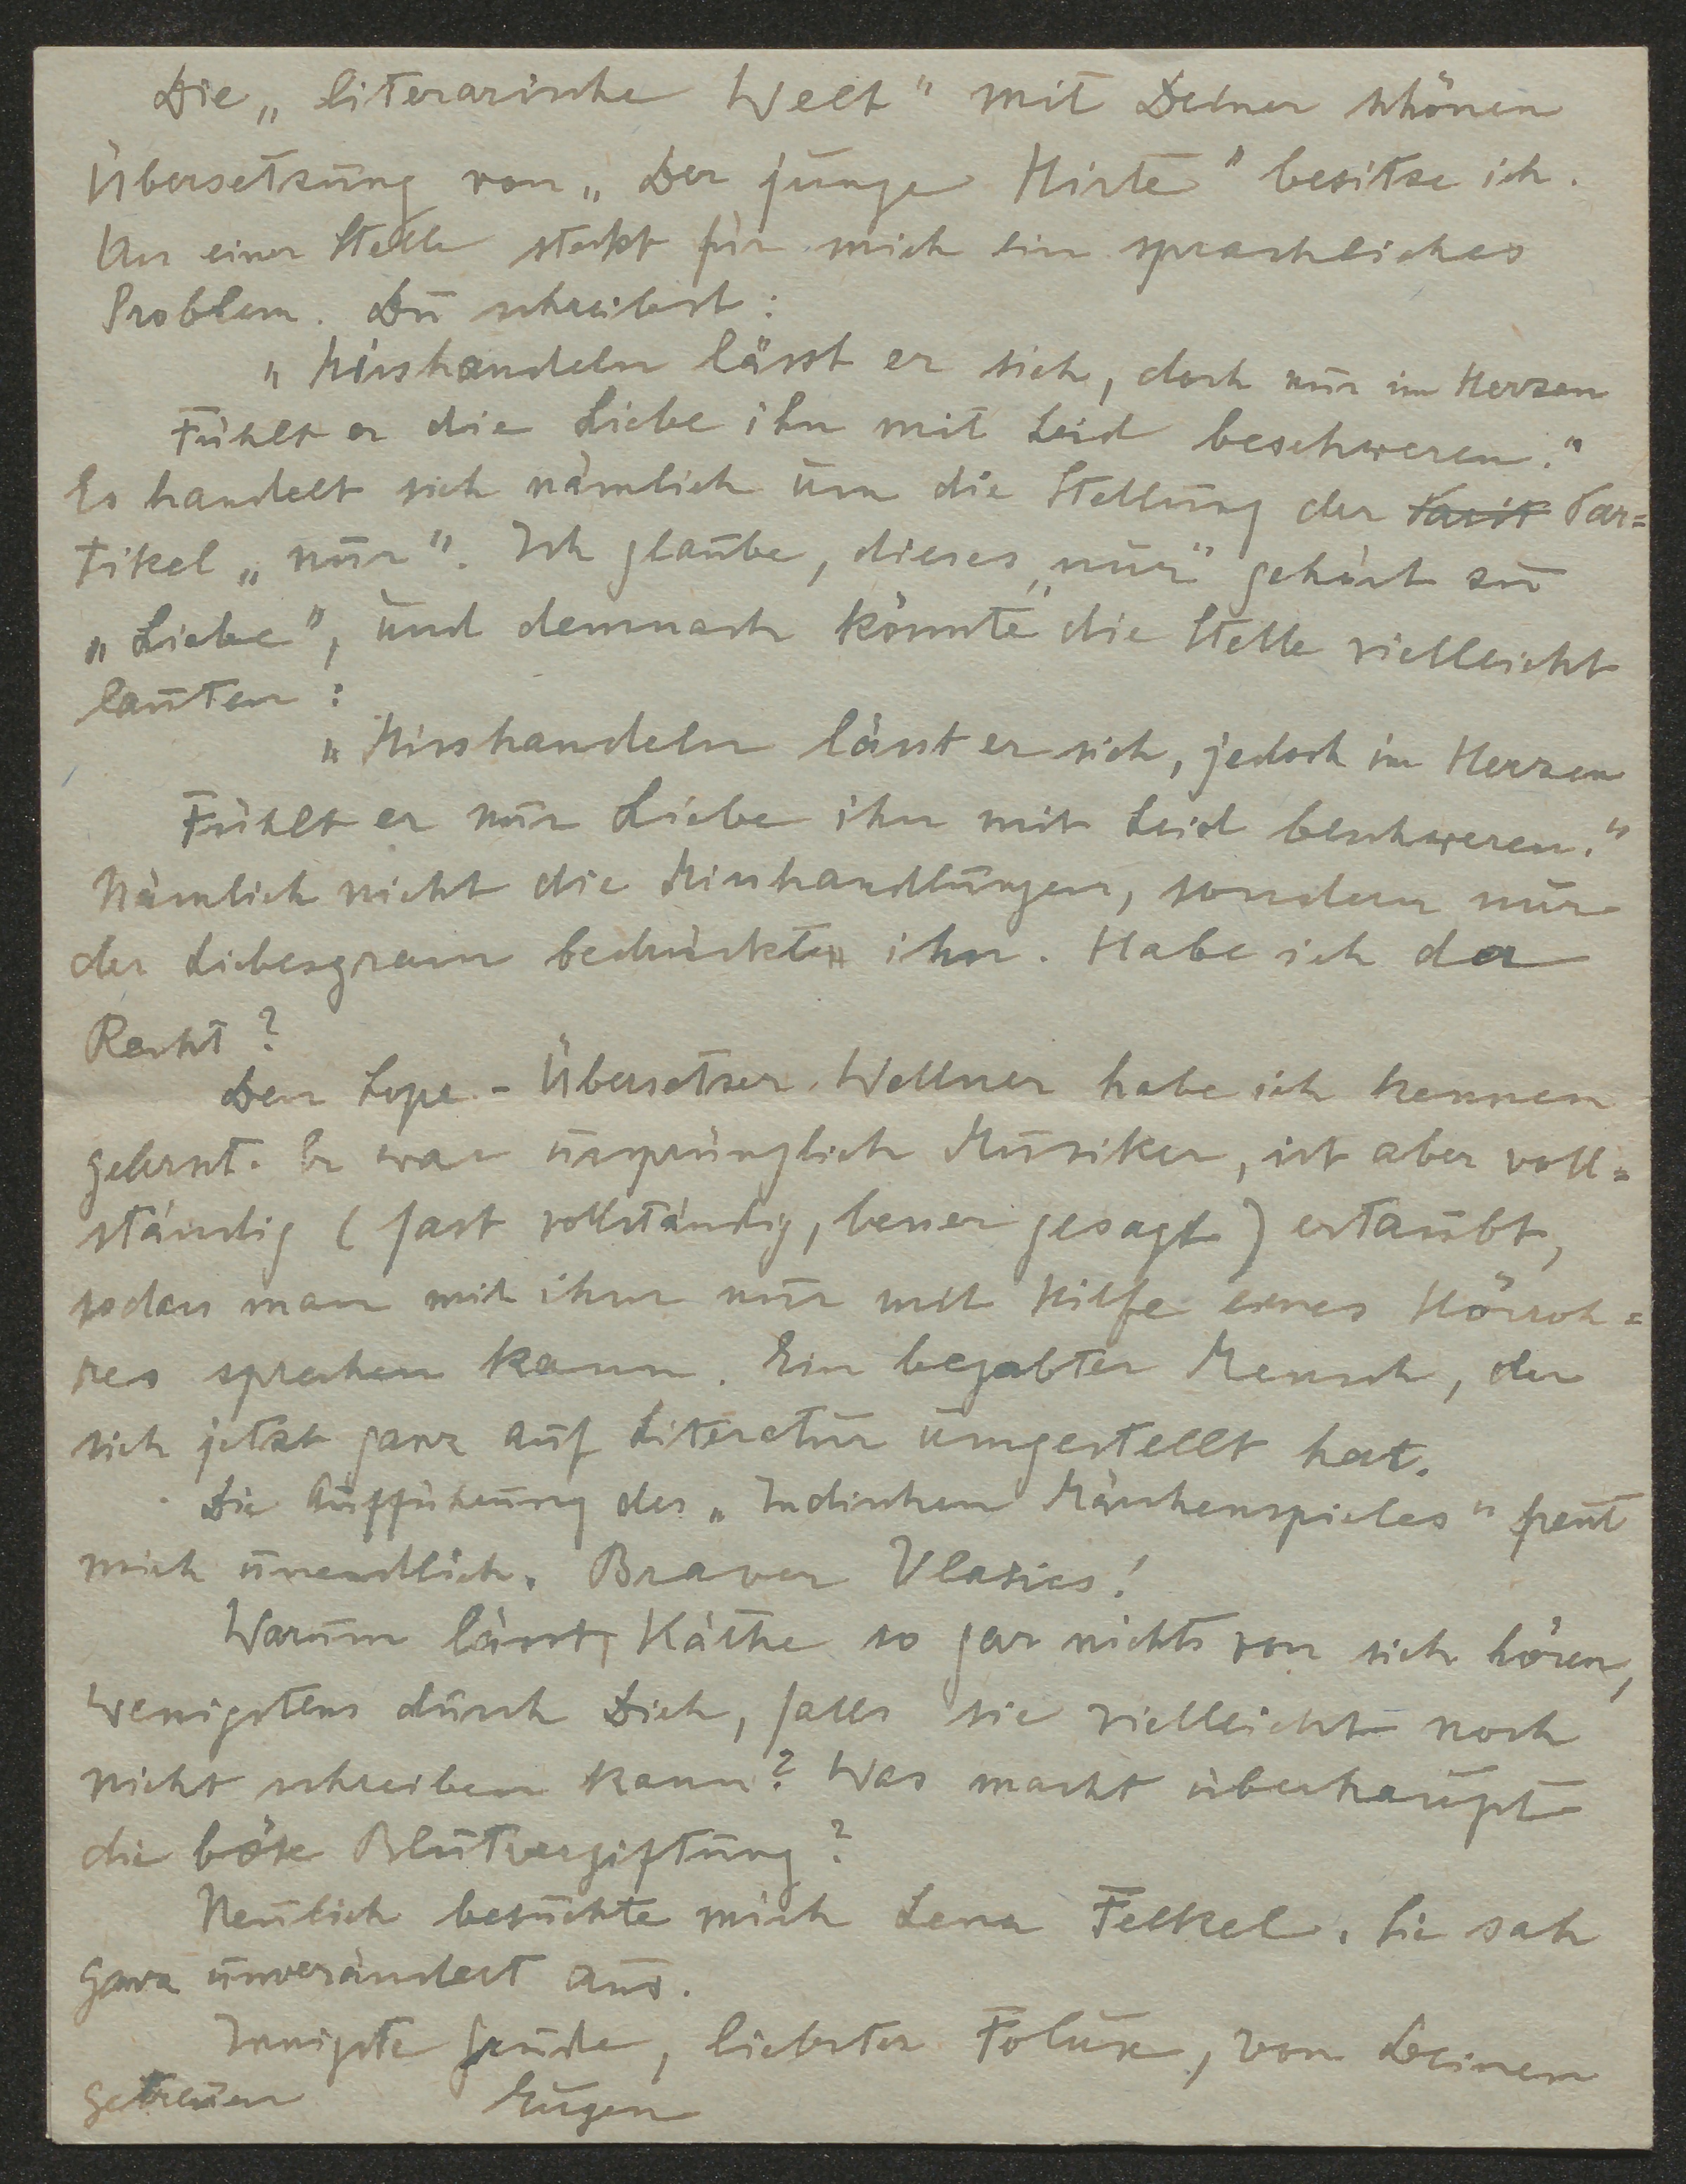 Die „literarische Welt" mit Deiner schönen
Übersetzung von „Der junge Hirte" besitze ich.
An einer Stelle steckt für mich ein sprachliches
Problem. Du schreibst:
„Misshandeln lässt er sich, doch nur im Herzen
Fühlt er die Liebe ihn mit Leid beschweren."
Es handelt sich nämlich um die Stellung der Par=
tikel „nur". Ich glaube, dieses „nur" gehört zu
„Liebe", und demnach könnte die Stelle vielleicht
lauten:
„Misshandeln lässt er sich, jedoch im Herzen
Fühlt er nur Liebe ihn mit Leid beschweren."
Nämlich nicht die Misshandlungen, sondern nur
der Liebesgram bedrückten ihn. Habe ich da
Recht?
Den Lope-Übersetzer Wellner habe ich kennen
gelernt. Er war ursprünglich Musiker, ist aber voll=
ständig (fast vollständig, besser gesagt) ertaubt,
sodass man mit ihm nur mit Hilfe eines Hörroh=
res sprechen kann. Ein begabter Mensch, der
sich jetzt ganz auf Literatur umgestellt hat.
Die Aufführung des „Indischen Märchenspieles" freut
mich unendlich. Braver Vlasics!
Warum lässt Käthe so gar nichts von sich hören,
wenigstens durch Dich, falls sie vielleicht noch
nicht schreiben kann? Was macht überhaupt
die böse Blutvergiftung?
Neulich besuchte mich Lena Felkel. Sie sah
ganz unverändert aus.
Innigste Grüsse, liebster, von Deinem
getreuen Eugen